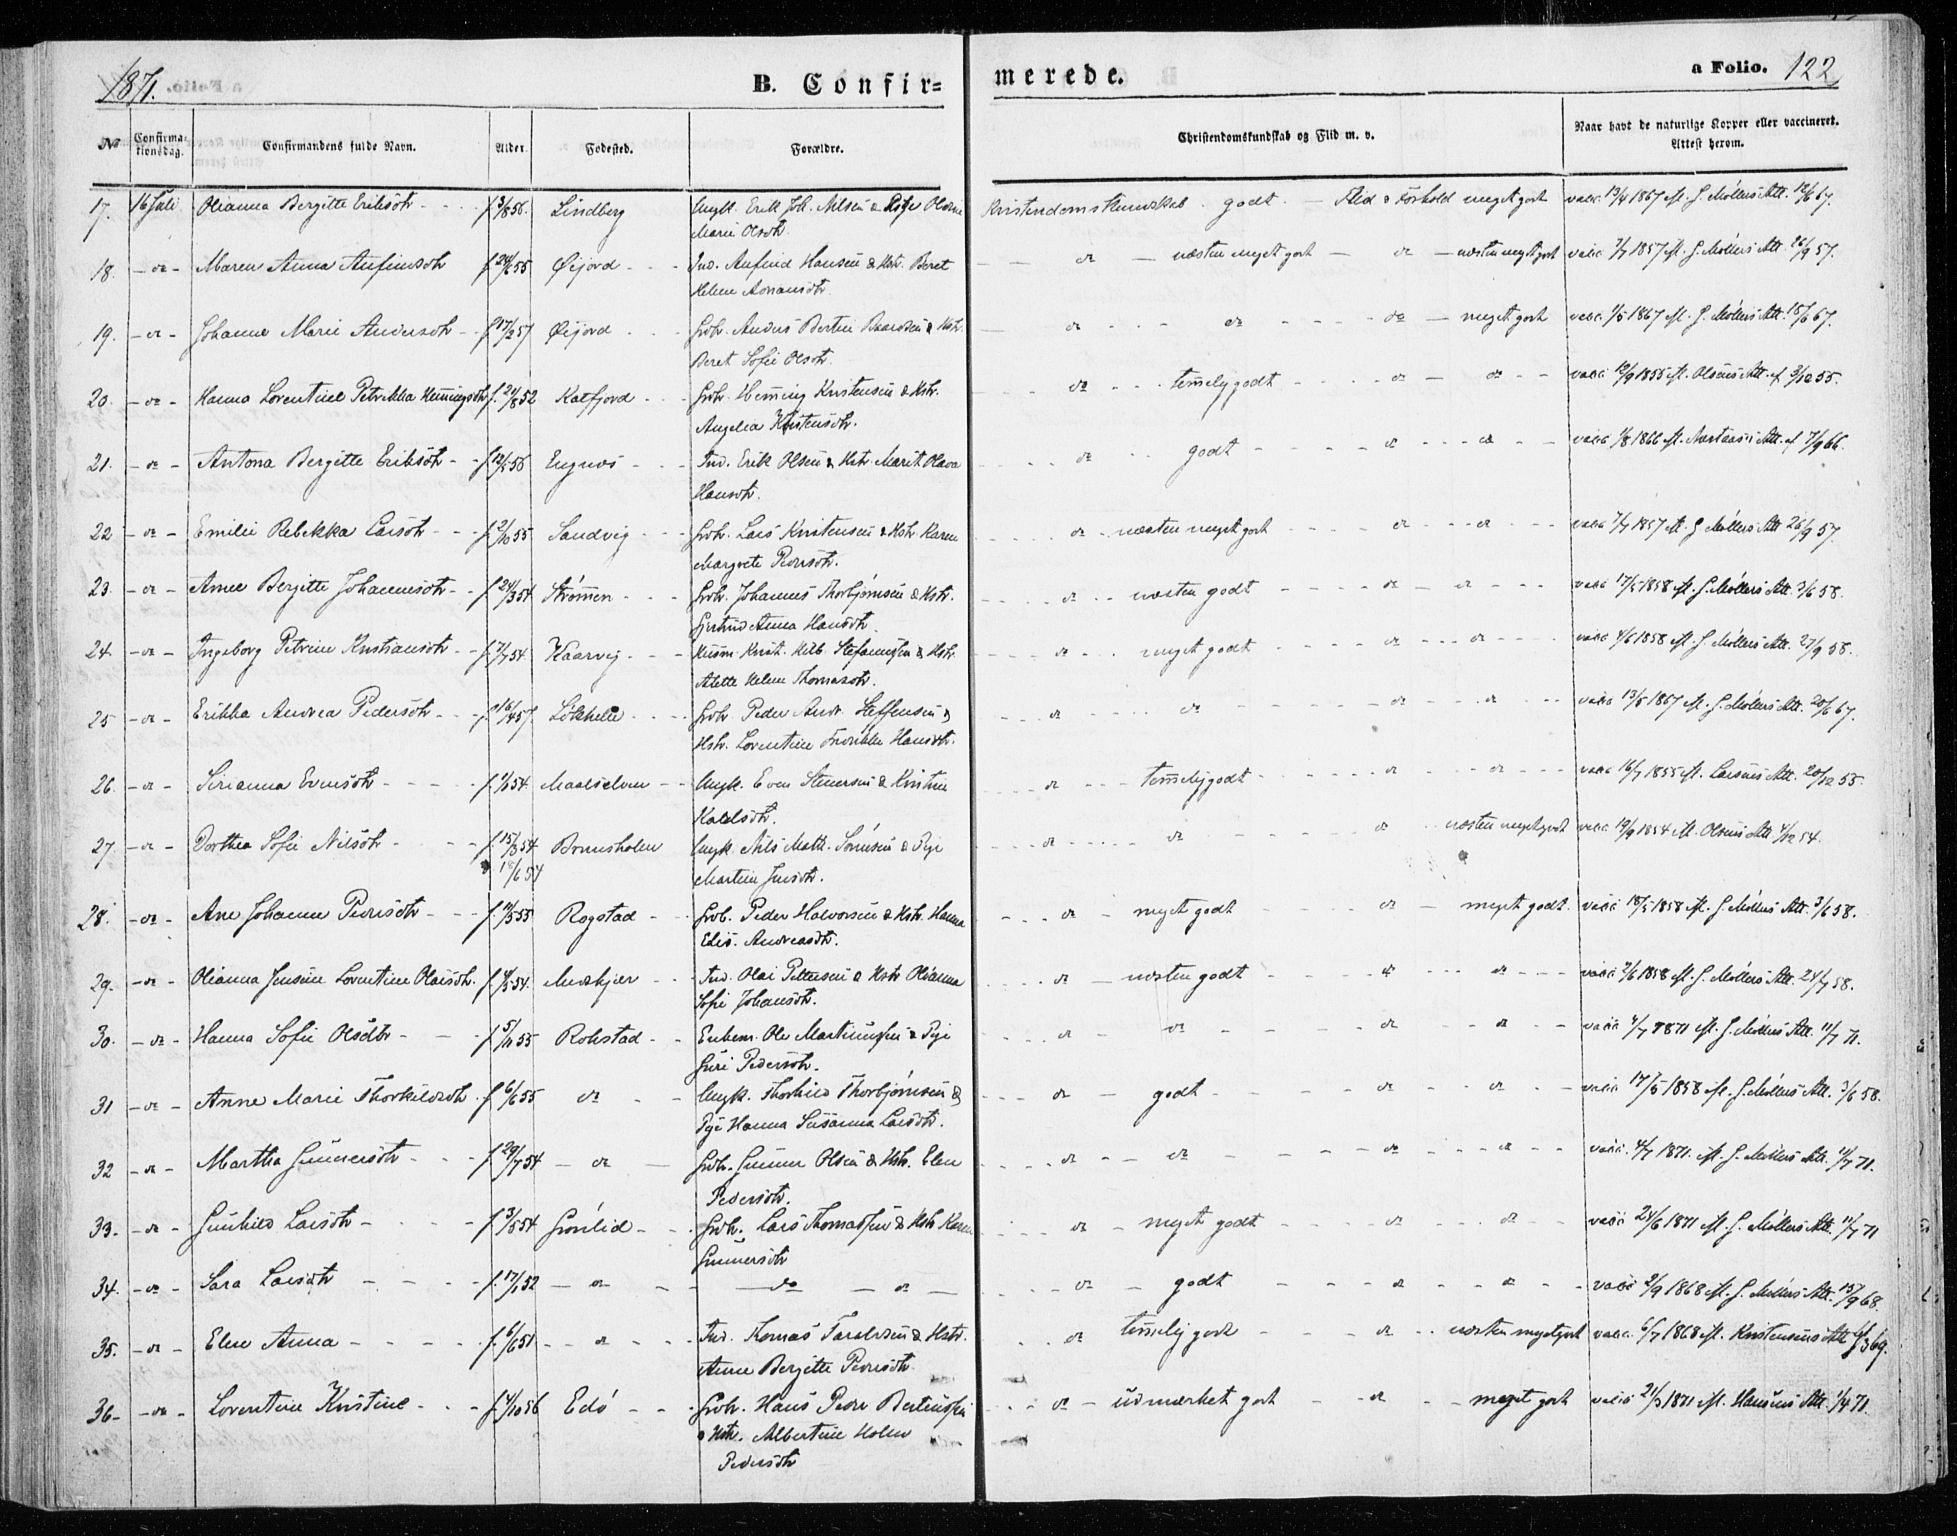 1871. B. Confir= merede. a Folio. 122
No Confirma-tionsdag. Confirmandens fulde Navn. Alder. Fodested. Forældre. Christendomskundskab og Flid m. v. Naar havt de naturlige Kopper eller vaccineret. Attest herom.
17. 16 Juli Olianna Bergitte Eriksdtr f. 3/8 56. Lindberg Ungk. Erik Joh. Nilsen & Pige Olava Kristendomskundskab godt. Flid & Forhold meget godt vacc. 13/4 1867 efl. G. Møllers Att. 12/6 67.
Marie Olsdtr.
18. - do - Maren Anna Anfinsdtr f. 24/6 55 Øijord Ind. Anfind Hansen & Hstr. Beret - do - næsten meget godt - do - næsten meget godt vacc. 7/7 1857 efl. G. Møllers Att. 26/9 57.
Helene Adriansdtr.
19. - do - Johanna Marie Andersdtr f. 17/2 57 Øijord Grbr. Anders Bertin Baardsen & Hstr. do do do - meget godt vacc. 1/5 1867 efl. G. Møllers Att. 18/6 67.
Beret Sofie Olsdtr.
20. - do - Hanna Lorentine Petrikka Henningsdtr f. 24/8 52 Katfjord Grbr. Henning Kristensen & Hstr. do temmelig godt do - do vacc. 12/9 1855 efl. Olsens Att. af 3/12 55.
Angelia Kristensdtr.
21. - do - Antona Bergitte Eriksdtr f. 12/5 56 Engnæs Ind. Erik Olsen & Hstr. Marit Olava do godt do do vacc. 1/8 1866 efl. Att. af 7/9 66.
Hansdtr.
22 - do - Emilie Rebekka Larsdtr f. 2/10 55 Sandvig Grbr. Lars Kristensen & Hstr. Karen do næsten meget godt do do vacc. 7/7 1857 efl. G. Møllers Att. 26/9 57.
Margrete Pedersdtr.
23. - do - Anne Bergitte Johannesdtr f. 24/3 54 Strømmen Grbr. Johannes Thorbjørnsen & Hstr. do næsten godt do do vacc. 17/5 1858 efl. G. Møllers Att. 3/6 58.
Gjertrud Anna Hansdtr.
24. - do - Ingeborg Petrine Kristiansdtr f. 7/7 54 Kaarvig Husm. Krist. Stefanussen & Hstr. do meget godt do do vacc. 4/6 1858 efl. G. Møllers Att. 27/9 58.
Alette Helene Thomasdtr.
25 - do - Erikka Andrea Pedersdtr f. 16/4 57. Løkhelle Grbr. Peder Andr. Steffensen & do do do do vacc. 13/5 1867 efl. G. Møllers Att. 20/6 67.
Hstr. Lorentine Fredrikke Hansdtr.
26. - do - Sirianna Evensdtr f. 54 Maalselven Ungk. Even Steuersen & Kristine do temmelig godt do do vacc. 16/7 1855 efl. Larsens Att. 20/12 55.
27. - do - Dorthea Sofie Nilsdtr f. 15/3 54 Bremsholen Ungk. Nils Math. Sørensen & Pige do do do næsten meget godt vacc. 12/9 1854 efl. Olsens Att. 4/12 54.
18/6 54 Martine Jensdtr.
28. - do - Ane Johanna Pedersdtr f. 55 Rogstad Grbr. Peder Halvorsen & Hstr. Hanna do meget godt do meget godt. vacc. 18/5 1858 efl. G. Møllers Att. 3/6 58.
Elis. Andreasdtr.
29. - do - Olianna Jensine Lorentine Olaisdtr. f. 4/5 54. Ind. Olai Pettersen & Hstr Olianna do næsten godt do do vacc. 2/6 1858 efl. G. Møllers Att. 24/7 58.
Sofie Johansdtr.
30. - do - Hanna Sofie Olsdtr f. 5/11 55 Rokstad Enkem. Ole Martinussen & Pige do do do do vacc. 4/7 1871 efl. G. Møllers Att. 11/7 71.
Guri Pedersdtr.
31 - do - Anne Marie Thorkildsdtr f. 6/6 55 do Ungk. Thorkild Thorbjørnsen & do godt do do vacc. 17/5 1858 efl. G. Møllers Att. 3/6 58.
Pige Hanna Susanna Larsdtr.
32 - do - Martha Gunnersdtr f. 29/7 54 - do - Grbr. Gunner Olsen & Hstr. Elen do do do do vacc. 4/7 1871. efl. G. Møllers Att. 11/7 71.
Pedersdtr.
33. - do - Gunhild Larsdtr f. 3/5 54 Grønlid Grbr. Lars Thomassen & Hstr. Karen do meget godt do do vacc. 24/6 1871 efl. G. Møllers Att. 11/7 71
Gunnersdtr
34. - do - Sara Larsdtr f. 17/1 52 - do - do - do - do godt do do vacc. 2/9 1868 efl. G. Møllers Att. 15/9 68.
35. - do - Elen Anna f. 6/6 51 do Ind. Thomas Taraldsen & Hstr. do temmelig godt do næsten meget godt vacc. 6/7 1868 efl. Kristensens Att. 69.
Anne Bergitte Pedersdtr
36. - do - Lorentine Kristine f. 4/10 56 Edø Grbr. Hans Peder Bertinussen do udmærket godt do meget godt vacc. 21/3 1871 efl. Hansens Att. 1/4 71.
& Hstr. Albertine Holm
Pedersdtr